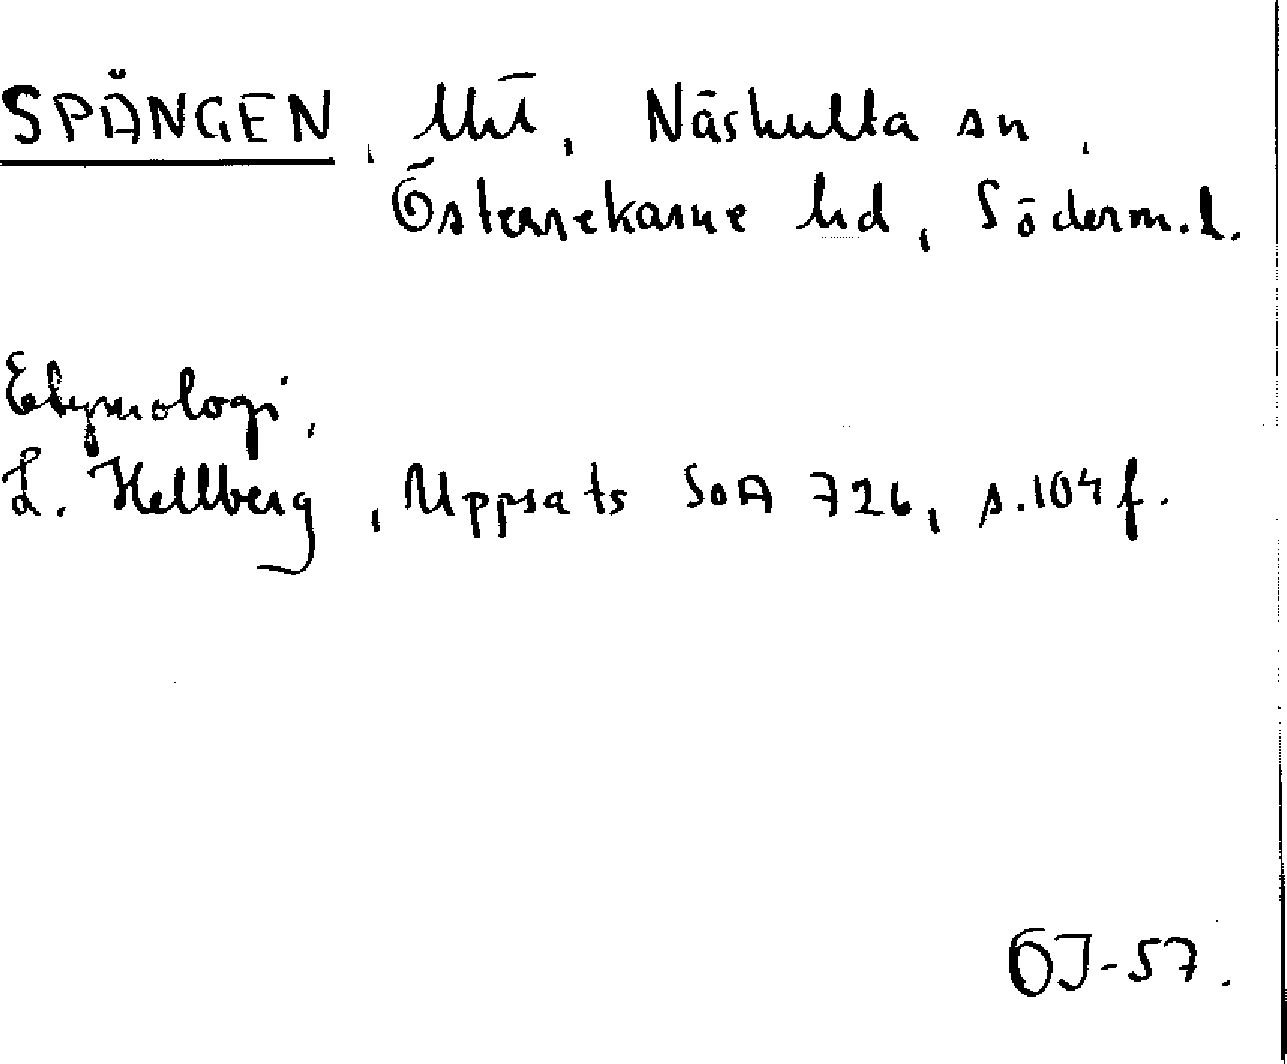 SPÄNGEN, Näshulta sn,
Österrekarne hd, Söderm.l.
Etymologi,
L. Hellberg, Uppsats SOA 726, s.104f.
ÖJ-57.